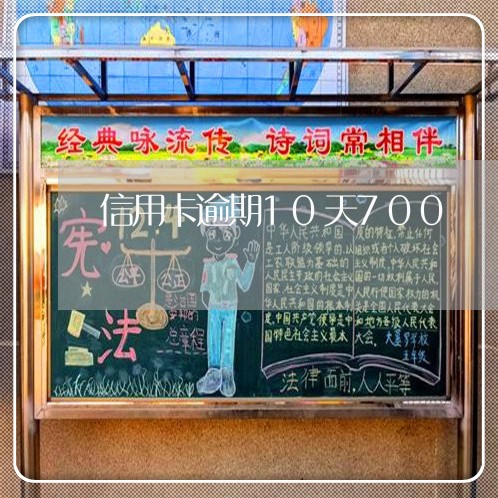 经典咏流传 诗词常相伴
信用卡逾期10天700
宪法
12.4
公平 公正
总章程
中华人民共和国
是工人阶级领导的,以
工农联盟为基础的
人民民主专政的社会主义
国家。社会主义制度是中
华人民共和国的根本制
度。中国共产党领导是中
国特色社会主义最本
质的特征。禁止任何
组织或者个人破坏社会
主义制度。中华人民共和
国的一切权利属于人民。
人民行使国家权力的机
关是全国人民代表大会
和地方各级人民代表
大会。
五年级
法律面前,人人平等